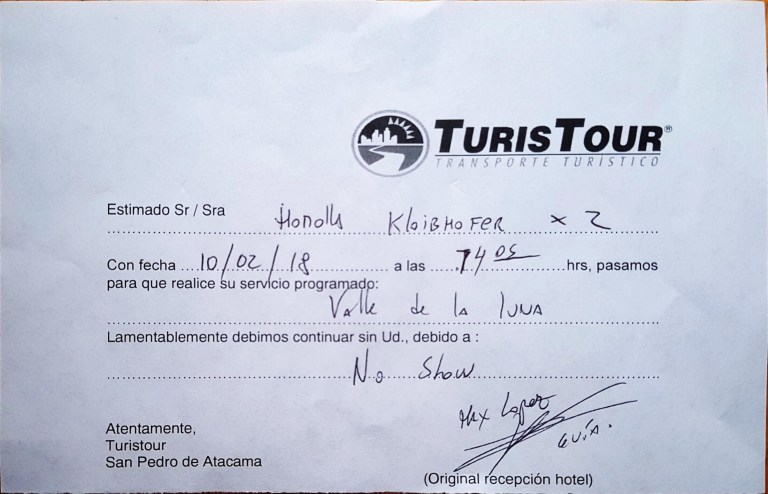 TURISTOUR®
TRANSPORTE TURÍSTICO
Estimado Sr / Sra KLOIBHOFER x 2
Con fecha 10/02/18 a las 14 05 hrs, pasamos
para que realice su servicio programado:
Valle de la luna
Lamentablemente debimos continuar sin Ud., debido a :
No Show
Alex Lopez
GUÍA.
Atentamente,
Turistour
San Pedro de Atacama
(Original recepción hotel)